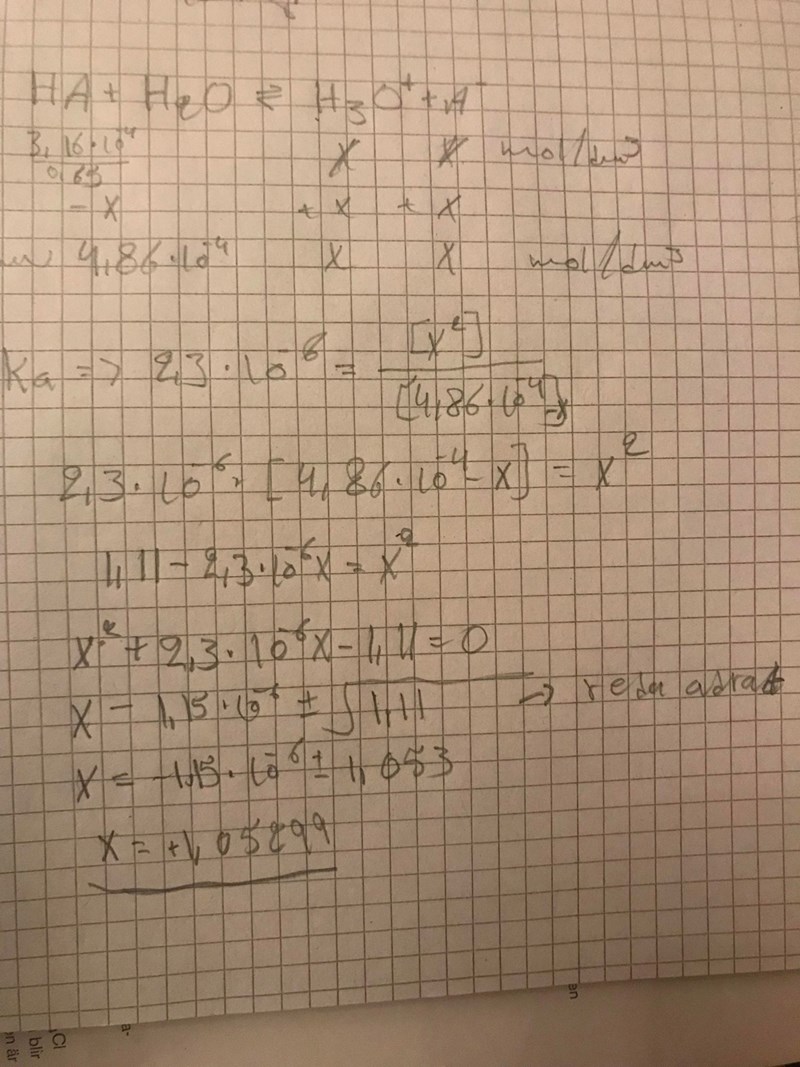 HA + H2O ⇌ H3O+ + A-
3,16·10^-4 / 0,65   X   X   mol/dm3
- X   + X   + X
4,86·10^-4   X   X   mol/dm3
Ka => 2,3·10^-6 = [X^2] / [4,86·10^-4]-x
2,3·10^-6 · [4,86·10^-4 - X] = X^2
1,11 - 2,3·10^-6 X = X^2
X^2 + 2,3·10^-6 X - 1,11 = 0
X = 1,15·10^-6 ± √1,11 → redan
X = -1,15·10^-6 ± 1,053
X = +1,05299
Cl
blir
n är
a-
an